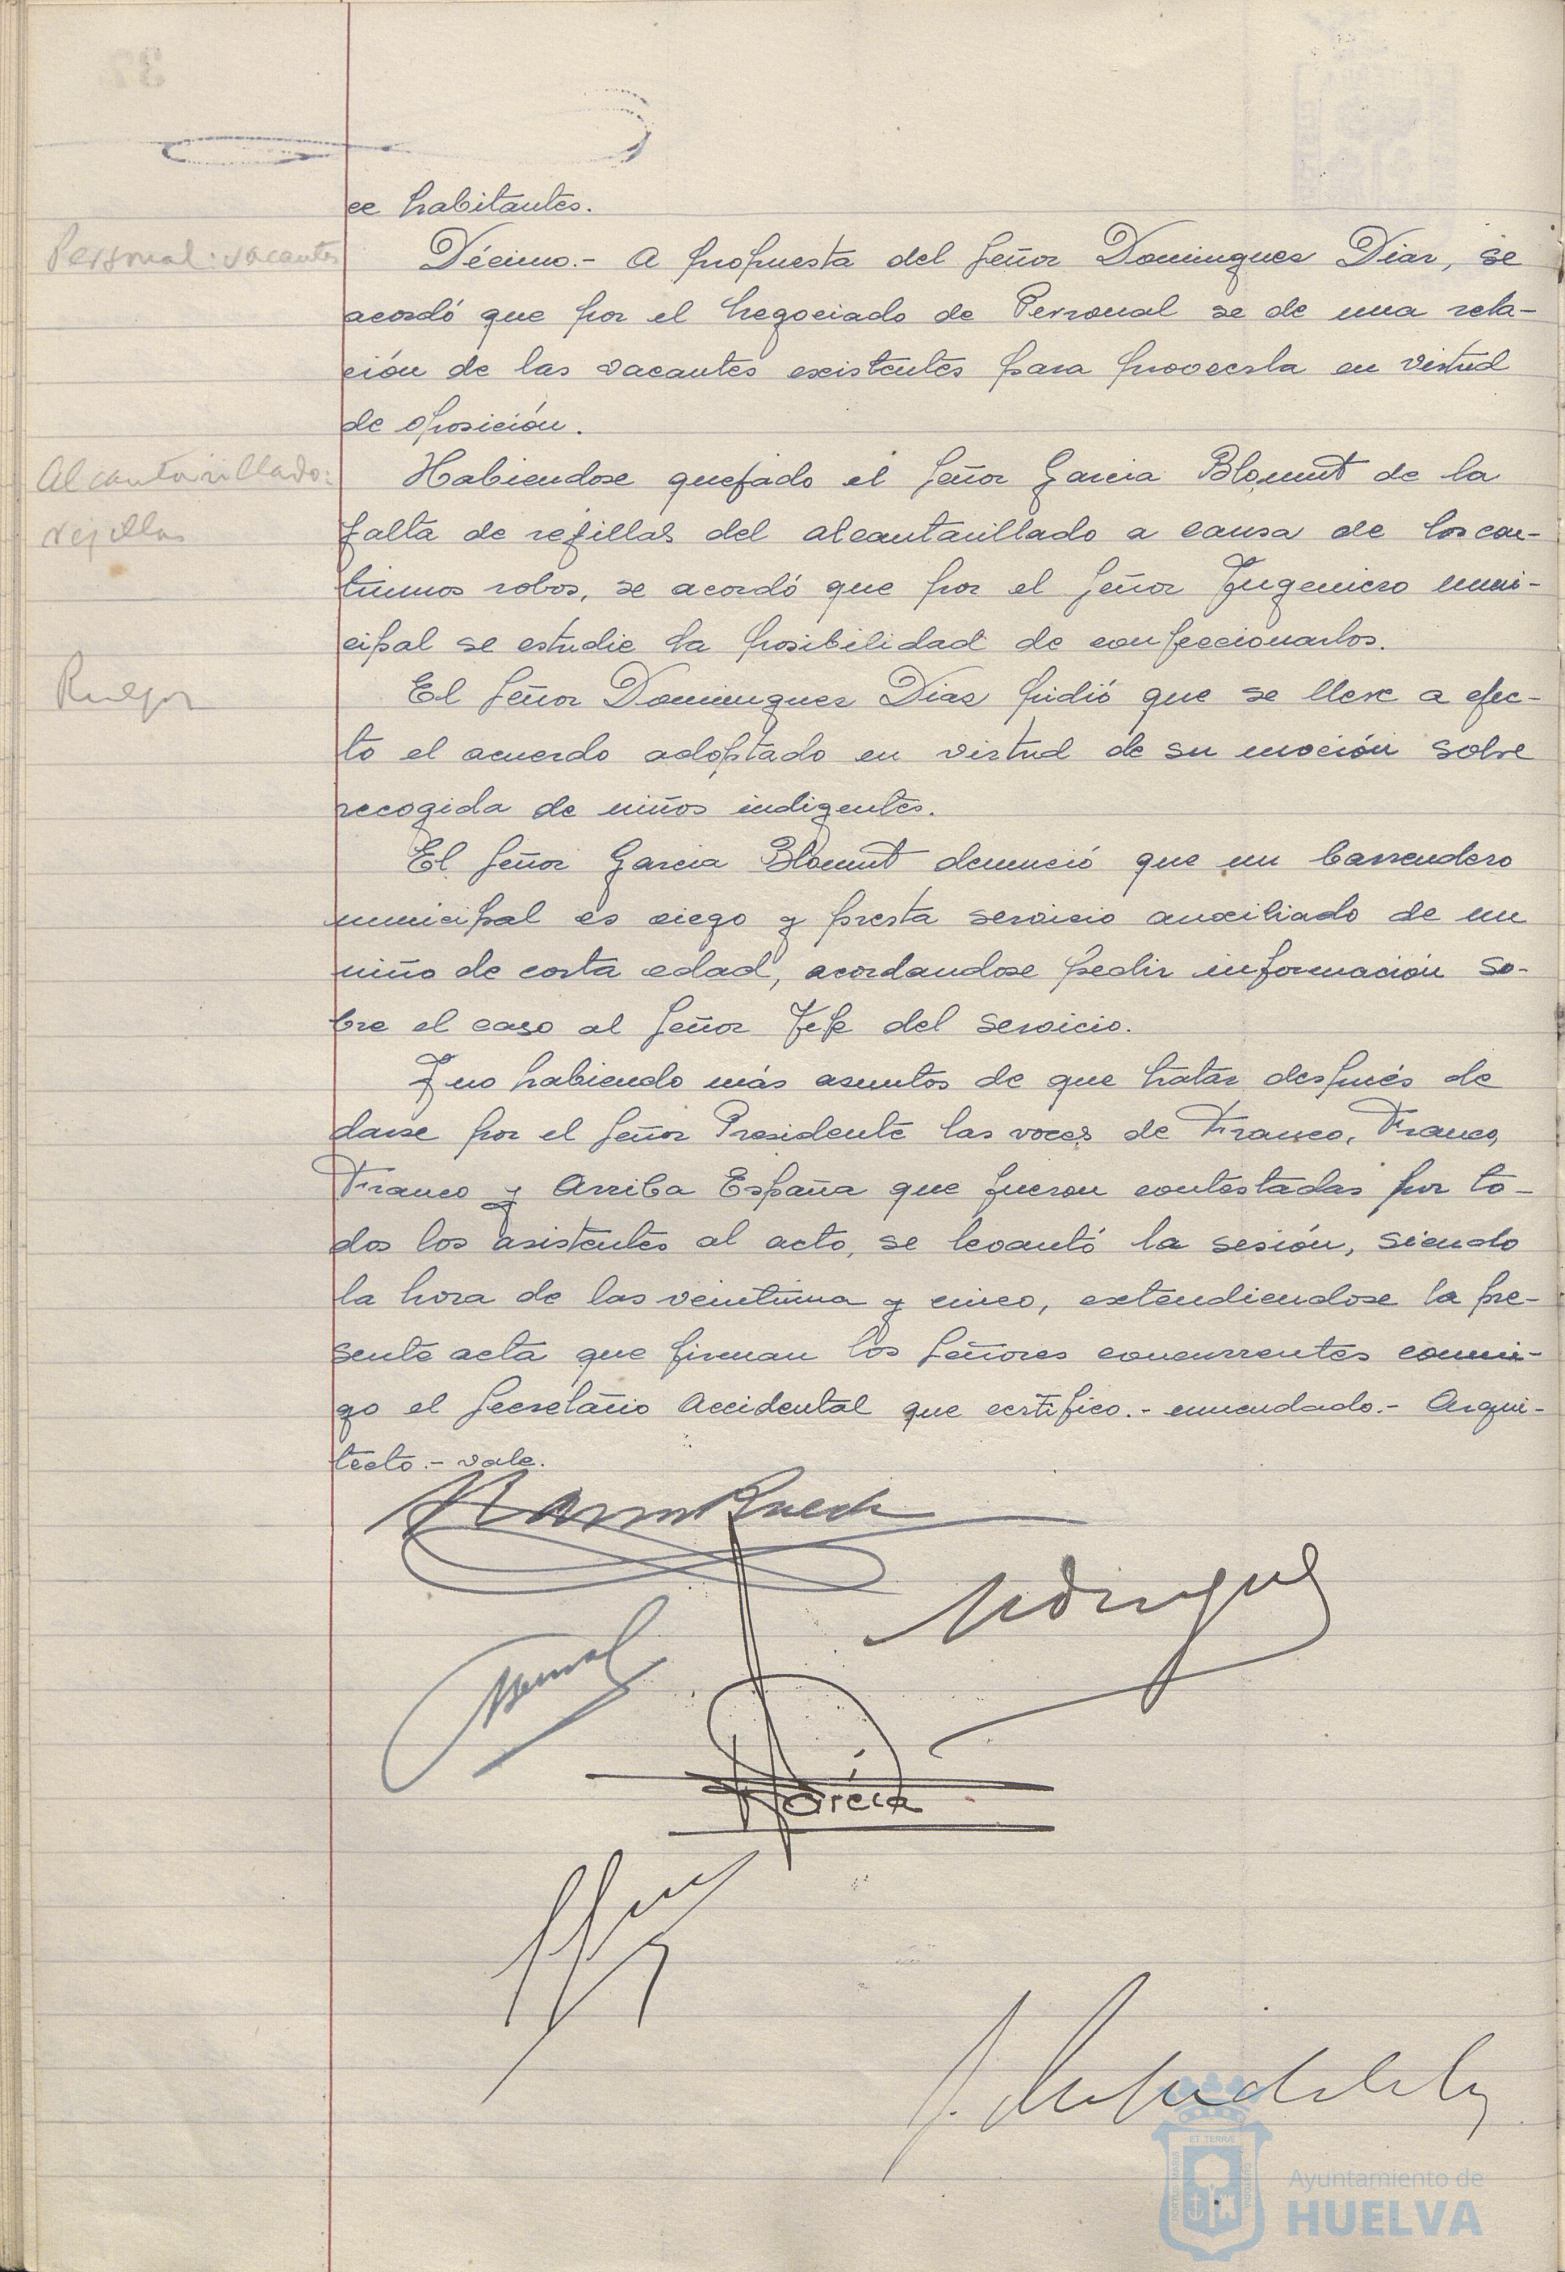 ce habitantes.
Personal: vacantes
Décimo.- A propuesta del Señor Dominguez Diaz, se
acordó que por el Negociado de Personal se de una rela-
ción de las vacantes existentes para proveerla en virtud
de oposición.
Alcantarillado:
rejillas
Habiendose quejado el Señor Garcia Blomunt de la
falta de rejillas del alcantarillado a causa de los con-
tinuos robos, se acordó que por el Señor Ingeniero muni-
cipal se estudie la posibilidad de confeccionarlos.
Ruegos
El Señor Dominguez Diaz pidió que se lleve a efec-
to el acuerdo adoptado en virtud de su moción sobre
recogida de niños indigentes.
El Señor Garcia Blomunt denunció que un barrendero
municipal es ciego y presta servicio auxiliado de un
niño de corta edad, acordandose pedir información so-
bre el caso al Señor Jefe del servicio.
Y no habiendo más asuntos de que tratar después de
darse por el Señor Presidente las voces de Franco, Franco,
Franco y Arriba España que fueron contestadas por to-
dos los asistentes al acto, se levantó la sesión, siendo
la hora de las veintiuna y cinco, extendiendose la pre-
sente acta que firman los Señores concurrentes conmi-
go el Secretario Accidental que certifico.- enmendado.- Arqui-
tecto.- vale.
Garcia
ET TERRAE
PORTUS MARIS
CUSTODIA
Ayuntamiento de
HUELVA